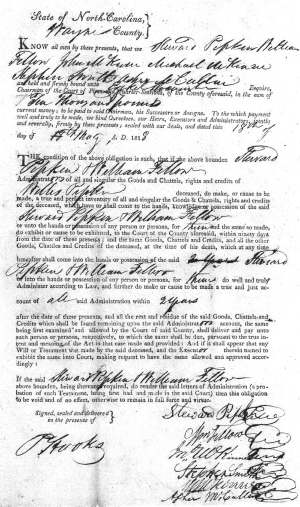 State of North-Carolina,
Wayne County.
KNOW all men by these presents, that we Steward Pipkin William
Fellow John McKinne Michael McKinne
Stephen Smith
held and firmly bound unto Esquire,
Chairman of the Court of County aforesaid, in the sum
of Ten thousand pounds
current money, to be paid to said Chairman, his Successors or Assigns. To the which payment
well and truly to be made, we bind Ourselves, our Heirs, Executors and Administrators, jointly
and severally, firmly by these presents; sealed with our Seals, and dated this
day of May A. D. 181
THE condition of the above obligation is such, that if the above bounden Steward
Pipkin & William Fellow
Administrators of all and singular the Goods and Chattels, rights and credits of
Pipkin deceased, do make, or cause to be
made, a true and perfect inventory of all and singular the Goods & Chattels, rights and credits
of the deceased, which have or shall come to the hands, knowledge or possession of the said
Steward Pipkin & William Fellow
or unto the hands or possession of any person or persons, for and the same so made,
do exhibit or cause to be exhibited, to the Court of the County aforesaid, within ninety days
from the date of these presents; and the same Goods, Chattels and Credits, and all the other
Goods, Chattels and Credits of the deceased, at the time of his death, which at any time
hereafter shall come into the hands or possession of the said Steward
Pipkin & William Fellow
or into the hands or possession of any person or persons, for do well and truly
Administer according to Law, and further do make or cause to be made a true and just ac-
count of all said Administration within 2 years
after the date of these presents; and all the rest and residue of the said Goods, Chattels and
Credits which shall be found remaining upon the said Administrators account, the same
being first examined and allowed by the Court of said County, shall deliver and pay unto
such person or persons, respectively, to which the same shall be due, pursuant to the true in-
tent and meaning of the Act in that case made and provided: And if it shall appear that any
Will or Testament was made by the said deceased, and the Executor therein named to
exhibit the same into Court, making request to have the same allowed and approved accord-
ingly:
If the said Steward Pipkin & William Fellow
above bounden, being thereunto required, do render the said Letters of Administration (a pro-
bation of such Testament, being first had and made in the said Court) then this obligation
to be void and of no effect, otherwise to remain in full force and virtue.
Signed, sealed and delivered
in the presence of
P Hooks
Steward Pipkin
Wm Fellow
Stephen Smith